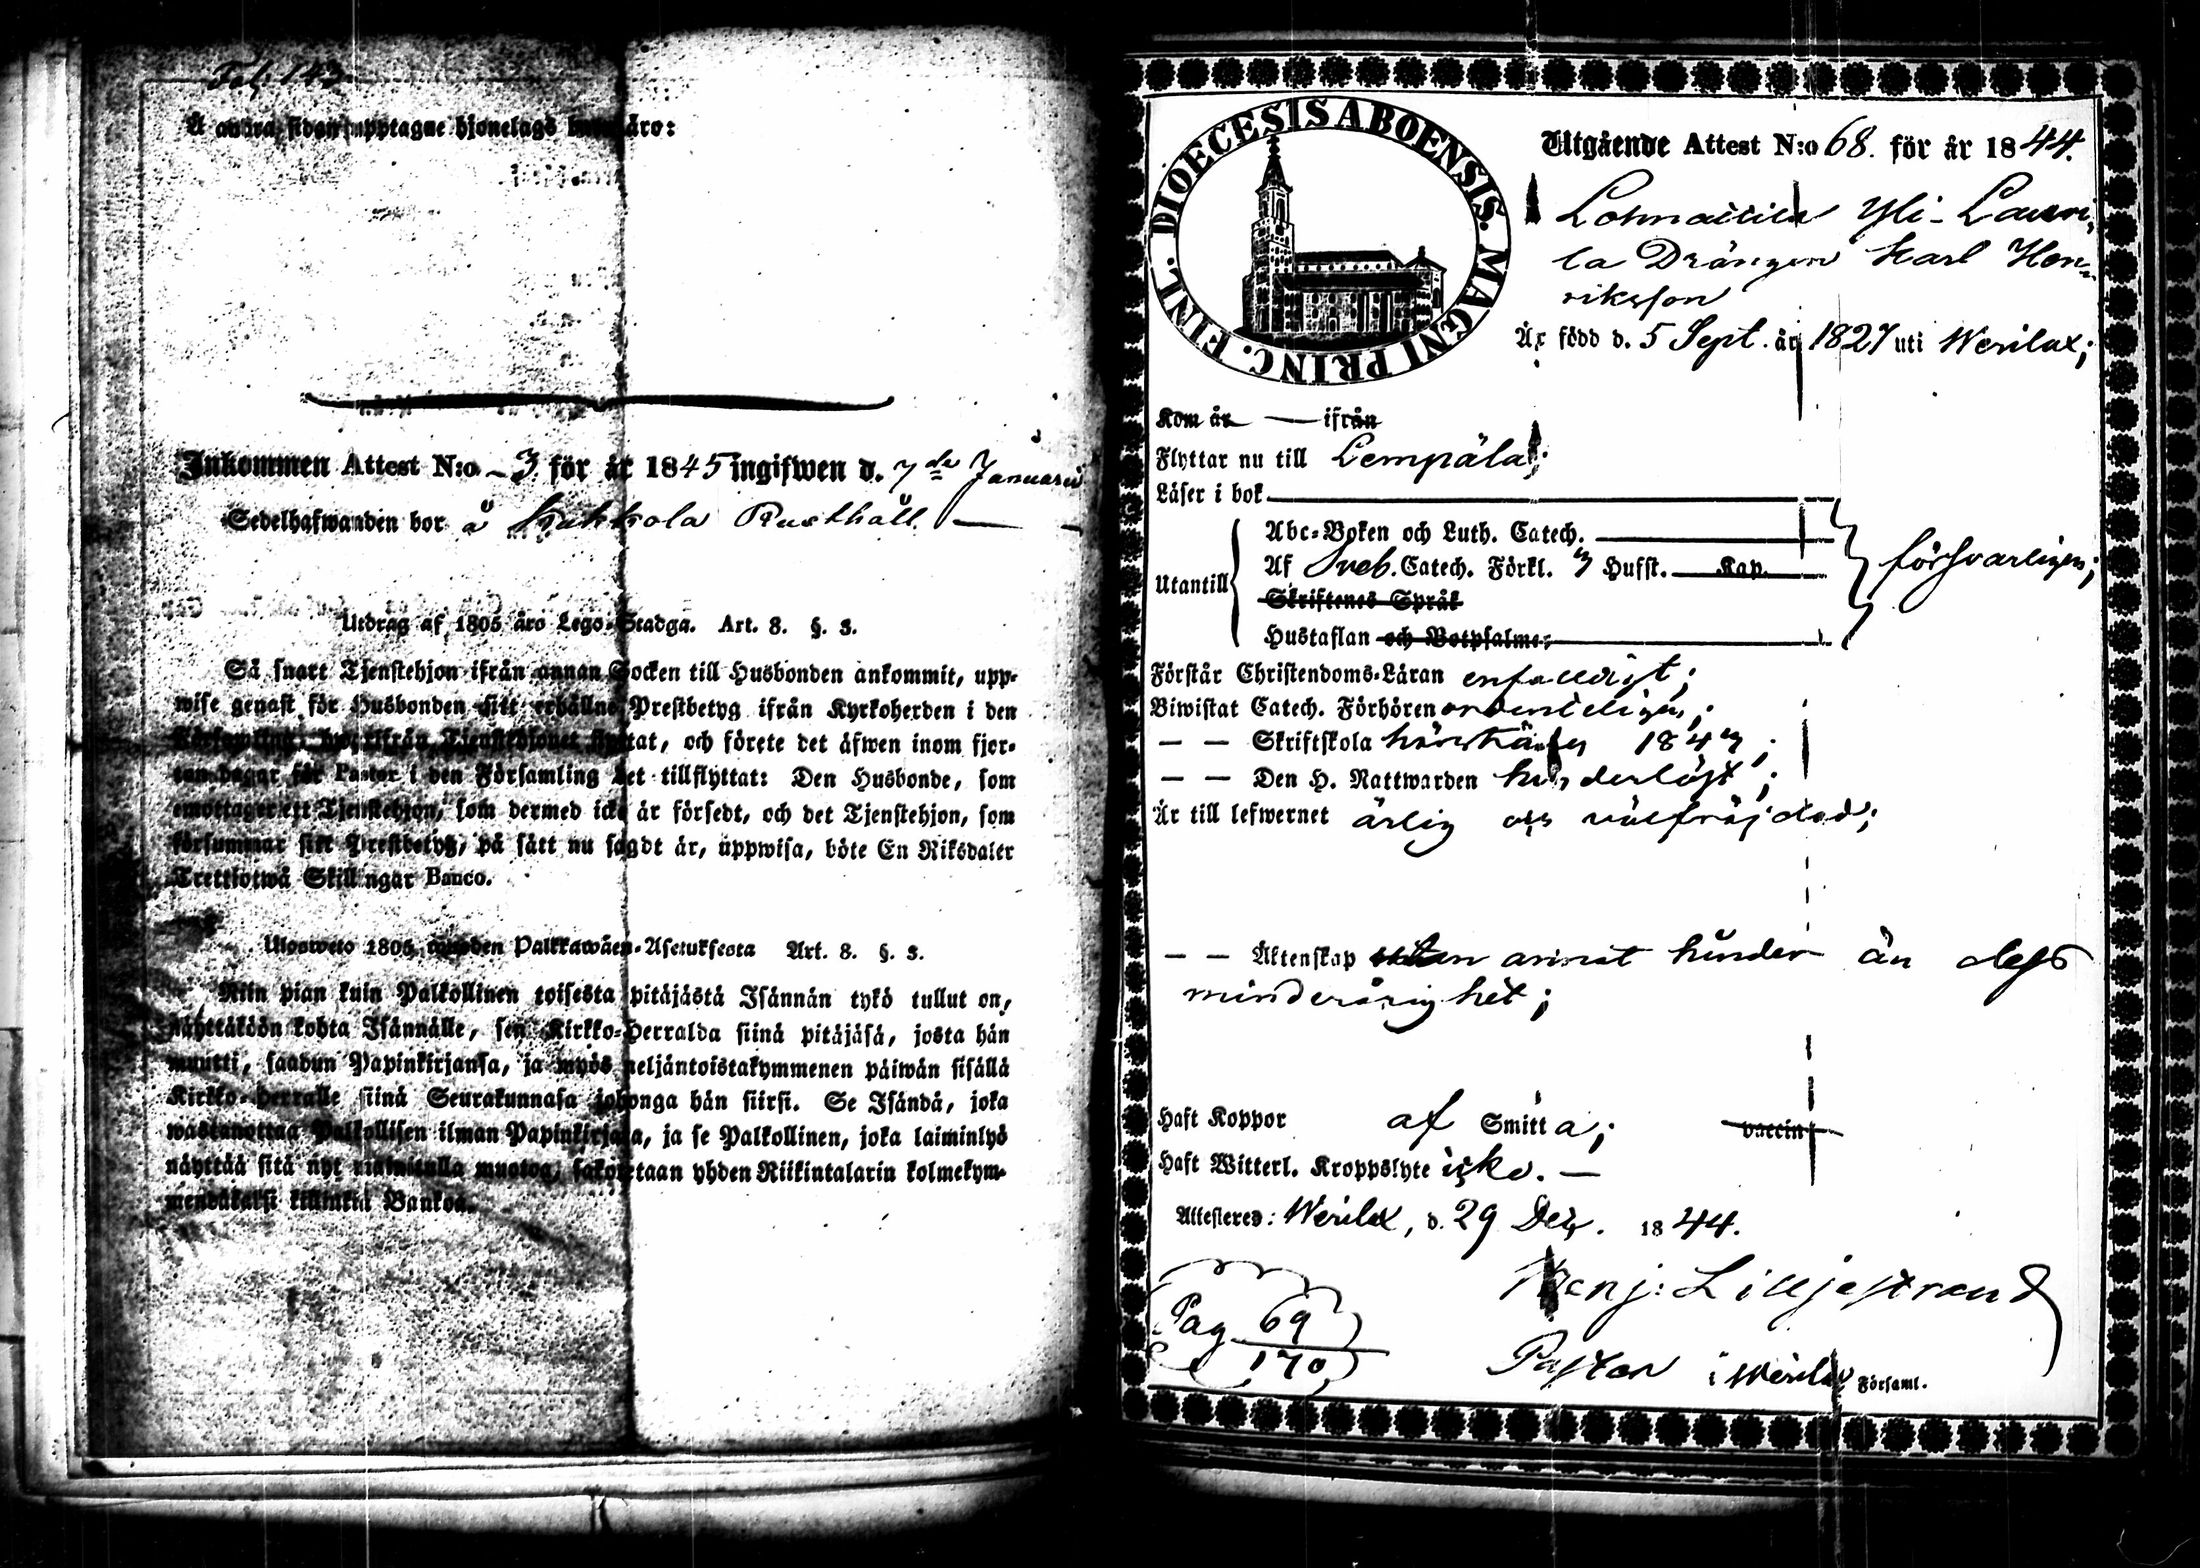 Fol. 143.
Å andra sidan upptagne hjonelags äro:
Inkommen Attest N:o 3 för år 1845 ingifwen d. 7de Januarii
Sedelhafwanden bor å Kukkola Rusthåll
Utdrag af 1805 års Lego-Stadga. Art. 8. §. 3.
Så snart Tjenstehjon ifrån annan Socken till Husbonden ankommit, upp-
wise genast för Husbonden sitt erhållne Prestbetyg ifrån Kyrkoherden i den
Församling, hwarifrån Tjenstehjonet flyttat, och förete det äfwen inom fjor-
ton dagar för Pastor i den Församling det tillflyttat: Den Husbonde, som
emottager ett Tjenstehjon, som dermed icke är försedt, och det Tjenstehjon, som
försummar sitt Prestbetyg, på sätt nu sagdt är, uppwisa, böte En Riksdaler
Trettiotwå Skillingar Banco.
Ulosweto 1805 wuoden Palkkawäen-Asetuksesta Art. 8. §. 3.
Niin pian kuin Palkollinen toisesta pitäjästä Isännän tykö tullut on,
näyttäköön kohta Isännälle, sen Kirkko-Herralda siinä pitäjäsä, josta hän
muutti, saadun Papinkirjansa, ja myös neljäntoistakymmenen päiwän sisällä
Kirkko-Herralle siinä Seurakunnasa johonga hän siirsi. Se Isändä, joka
wastanottaa Palkollisen ilman Papinkirjata, ja se Palkollinen, joka laiminlyö
näyttää sitä nyt mainitulla muotoa, sakoitetaan yhden Riikintalarin kolmekym-
mendäkaksi killinkiä Bankoa.
DIOECESIS ABOENSIS. MAGNI PRINC. FINL.
Utgående Attest N:o 68. för år 1844.
Yli-Lauri-
la Drängen Karl Hen-
riksson
Är född d. 5 Sept. år 1827 uti Wesilax;
Kom år — ifrån
Flyttar nu till Lempäla;
Läser i bok
Abc-Boken och Luth. Catech.
Utantill Af Sveb. Catech. Förkl. 3 Hufst. Kap. försvarligen;
Skriftenes Språk
Hustaflan och Botpsalmer
Förstår Christendoms-Läran enfaldigt;
Biwistat Catech. Förhören ordenteligen;
— — Skriftskola 1843;
— — Den H. Nattwarden hinderlöst;
Är till lefwernet ärlig och välfräjdad;
— — Äktenskap utan annat hinder än dess
minderårighet;
Haft Koppor af Smitta; vaccin
Haft Witterl. Kroppslyte icke. —
Attesteres: Wesilax, d. 29 Dec. 1844.
Benj: Lilljestrand
Pag 69
170
Pastor i Wesilax Församl.